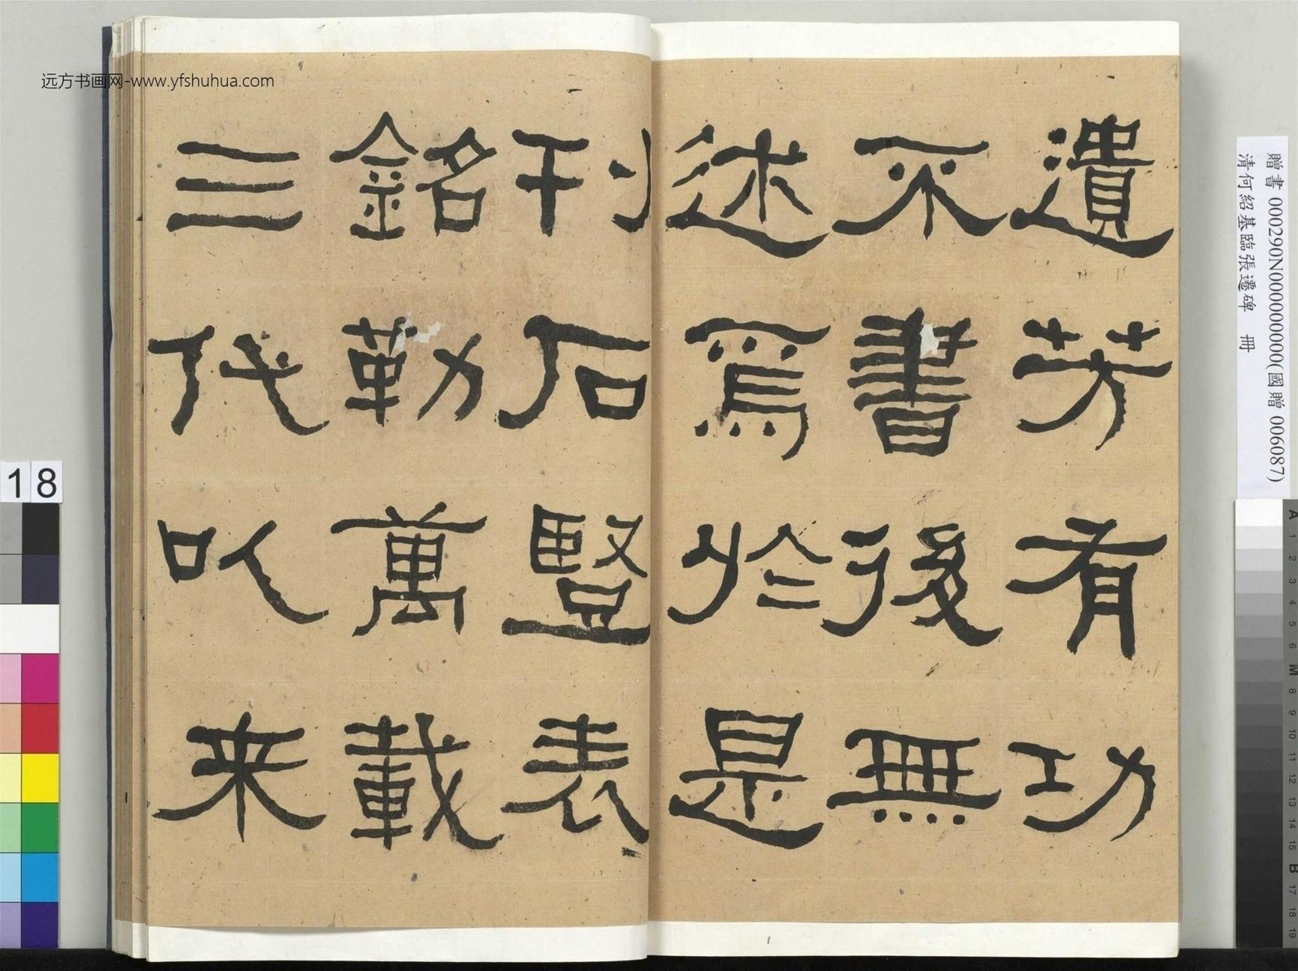 遺芳有功
不書後無
述焉於是
刊石豎表
銘勒萬載
三代以来
远方书画网-www.yfshuhua.com
贈書 000290N000000000(國贈 006087)
清何紹基臨張遷碑 冊
18
A 1 2 3 4 5 6 M 8 9 10 11 12 13 14 15 B 17 18 19